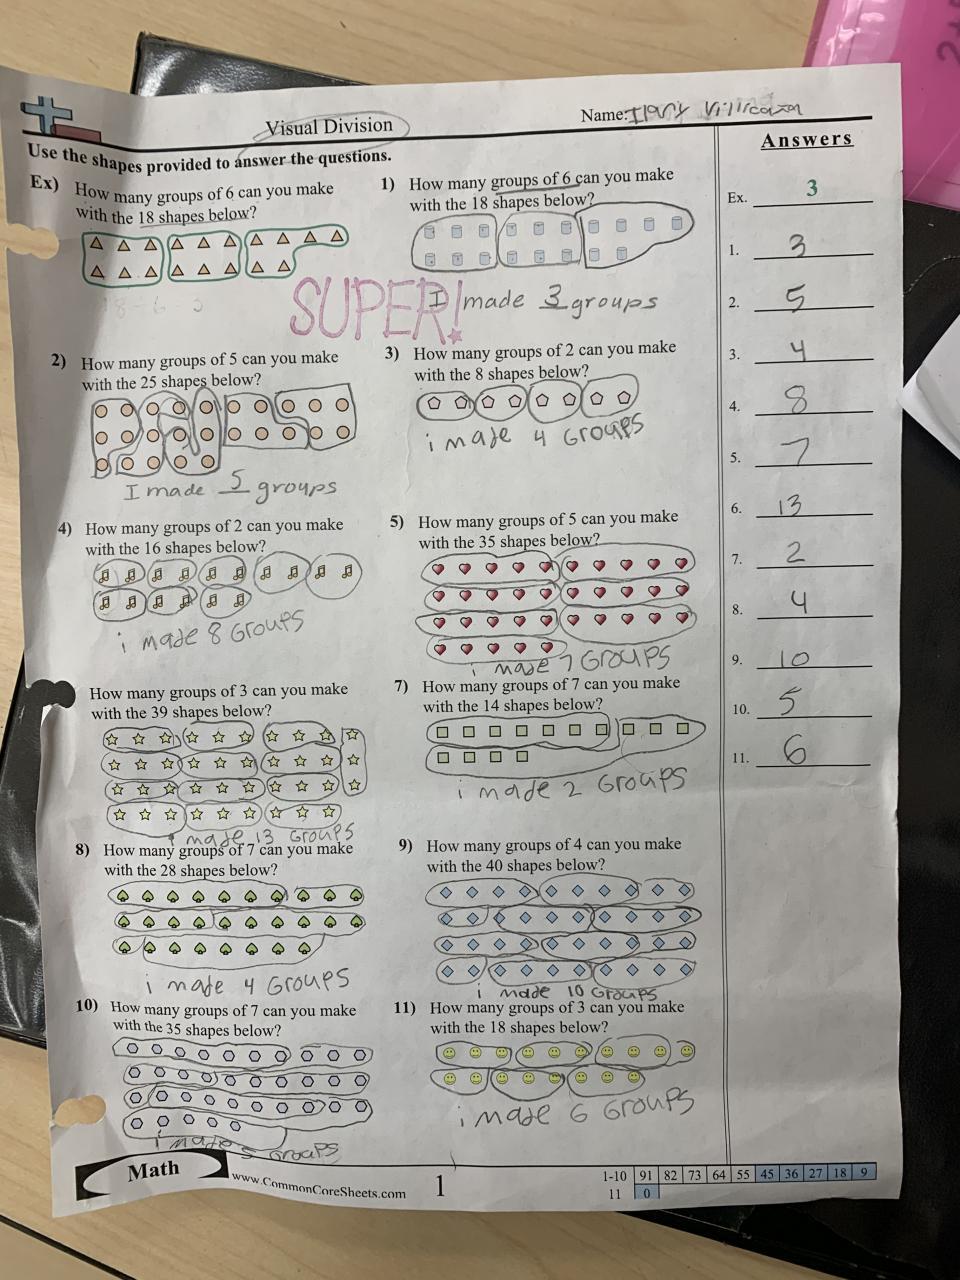 Visual Division
Name:
Use the shapes provided to answer the questions.
Answers
Ex) How many groups of 6 can you make
with the 18 shapes below?
1) How many groups of 6 can you make
with the 18 shapes below?
SUPER!
I made 3 groups
2) How many groups of 5 can you make
with the 25 shapes below?
I made 5 groups
3) How many groups of 2 can you make
with the 8 shapes below?
i made 4 Groups
4) How many groups of 2 can you make
with the 16 shapes below?
i made 8 Groups
5) How many groups of 5 can you make
with the 35 shapes below?
i made 7 Groups
How many groups of 3 can you make
with the 39 shapes below?
i made 13 Groups
7) How many groups of 7 can you make
with the 14 shapes below?
i made 2 Groups
8) How many groups of 7 can you make
with the 28 shapes below?
i made 4 Groups
9) How many groups of 4 can you make
with the 40 shapes below?
i made 10 Groups
10) How many groups of 7 can you make
with the 35 shapes below?
i made 5 Groups
11) How many groups of 3 can you make
with the 18 shapes below?
i made 6 Groups
Ex. 3
1. 3
2. 5
3. 4
4. 8
5. 7
6. 13
7. 2
8. 4
9. 10
10. 5
11. 6
Math
www.CommonCoreSheets.com
1
1-10 91 82 73 64 55 45 36 27 18 9
11 0